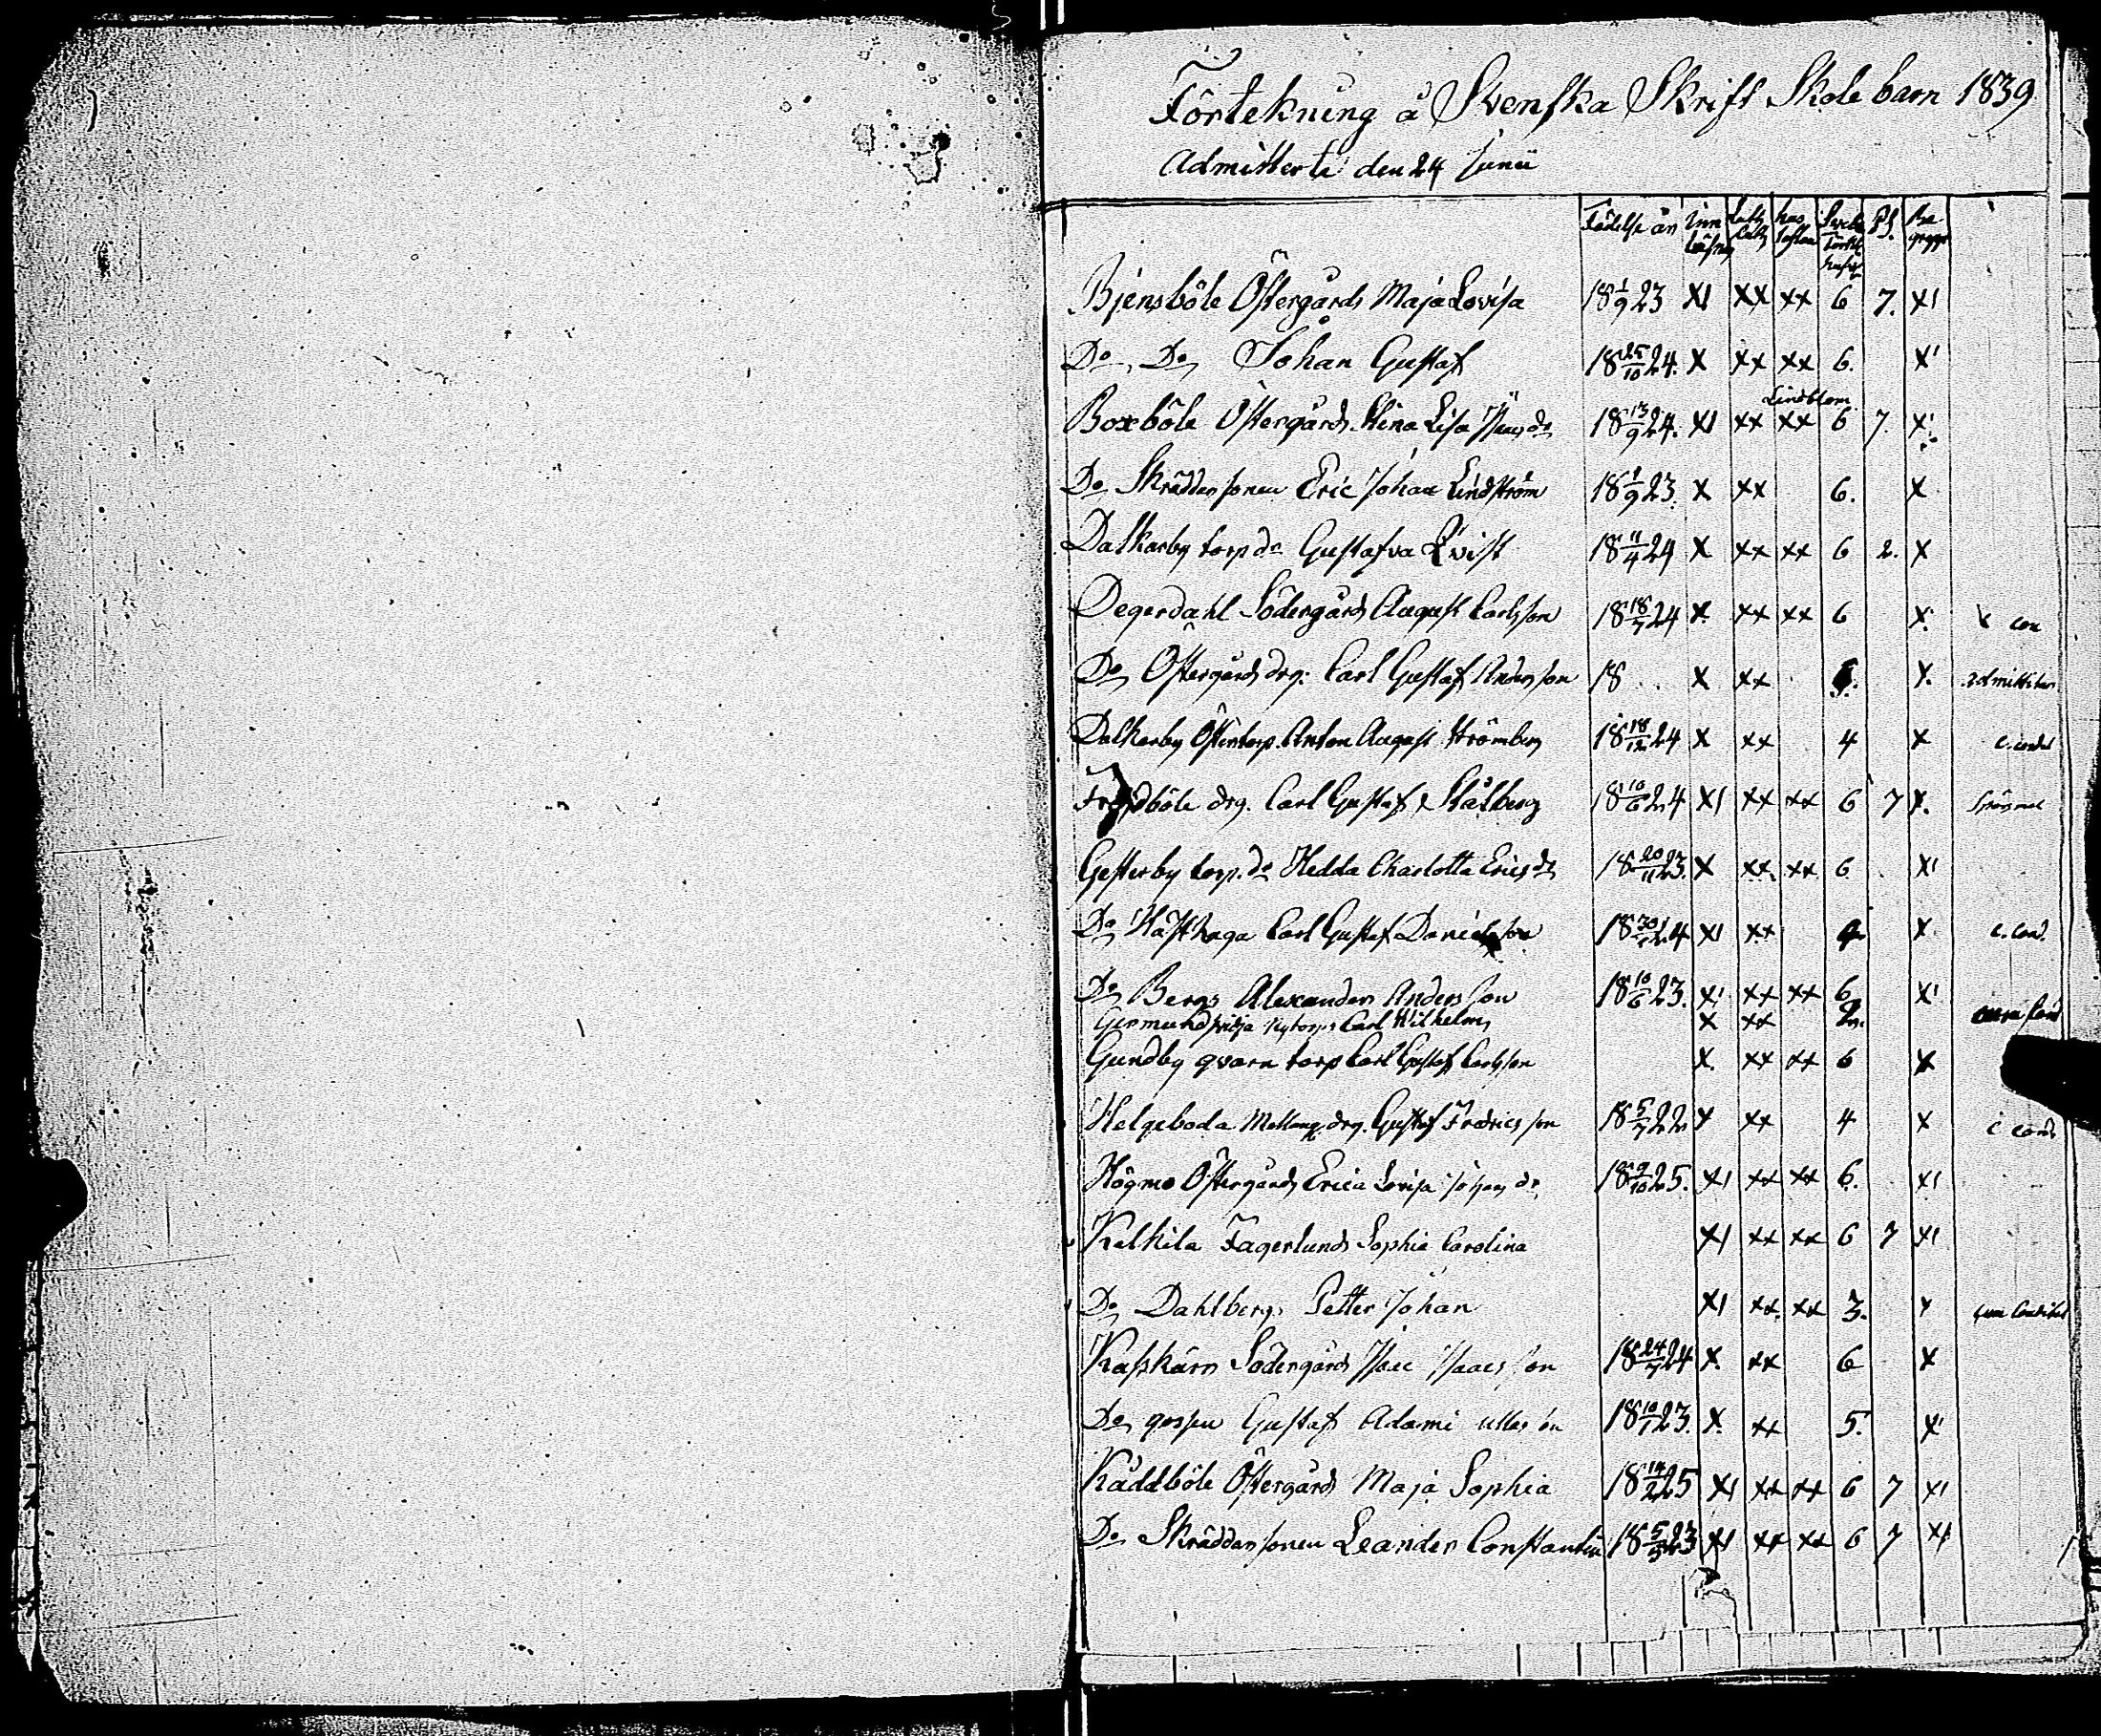 Förtekning å Svenska Skrift Skole barn 1839
Admitterte den 24 Junii
Födelse år Inn läsning hus taflan P.S. Be grepp
Bjensböle Östergårds Maja Lovisa 18 1/9 23 XI XX XX 6 7. XI
Do Do Johan Gustaf 18 25/10 24. X XX XX 6. X'
Lindblom
Boxböle Östergårds Stina Lisa dr 18 13/9 24. XI XX XX 6 7. X'
Do Skräddar sonen Eric Johan Lindström 18 1/9 23. X XX 6. X
Dalkarby torp dr Gustafva Qvist 18 11/4 24 X XX XX 6 2. X
Degerdahl Södergårds August Carlsson 18 18/7 24 X. XX XX 6 X. X con
Do Östergårds drg. Carl Gustaf Andersson 18 X XX X. admittitur
Dalkarby Östertorp. Anton August Strömberg 18 18/12 24 X XX 4 X c. condit
Fredböle drg. Carl Gustaf Stålberg 18 10/6 24 XI XX XX 6 7 X.
Gesterby torp. dr Hedda Charlotta Ericsdr 18 20/11 23. X XX XX 6 XI
Do Hästhaga Carl Gustaf Danielsson 18 24 XI XX X c. Cond.
Do Bergs Alexander Andersson 18 10/6 23. X' XX XX 6 X'
Germundsvidja Nytorps Carl Wilhelm X XX
Gundby qvarn torp Carl Gustaf Carlsson X. XX XX 6 X
Helgeboda Mellang. drg. Gustaf Fredricsson 18 5/7 22 X XX 4 X c Cond.
Högmo Östergårds Erica Lovisa Johans dr 18 9/10 25. XI XX XX 6. XI
Kalkila Fagerlunds Sophia Carolina XI XX XX 6 7 XI
Do Dahlbergs Petter Johan XI XX XX 3. X
Kasskärr Södergårds Isac Isacsson 18 24/7 24 X XX 6 X
Do gossen Gustaf Adami 18 10/1 23. X. XX 5. X'
Kåddböle Östergårds Maja Sophia 18 14/2 25 XI XX XX 6 7 XI
Do Skräddar sonen Leander Constantin 18 5/3 23 XI XX XX 6 7 XI